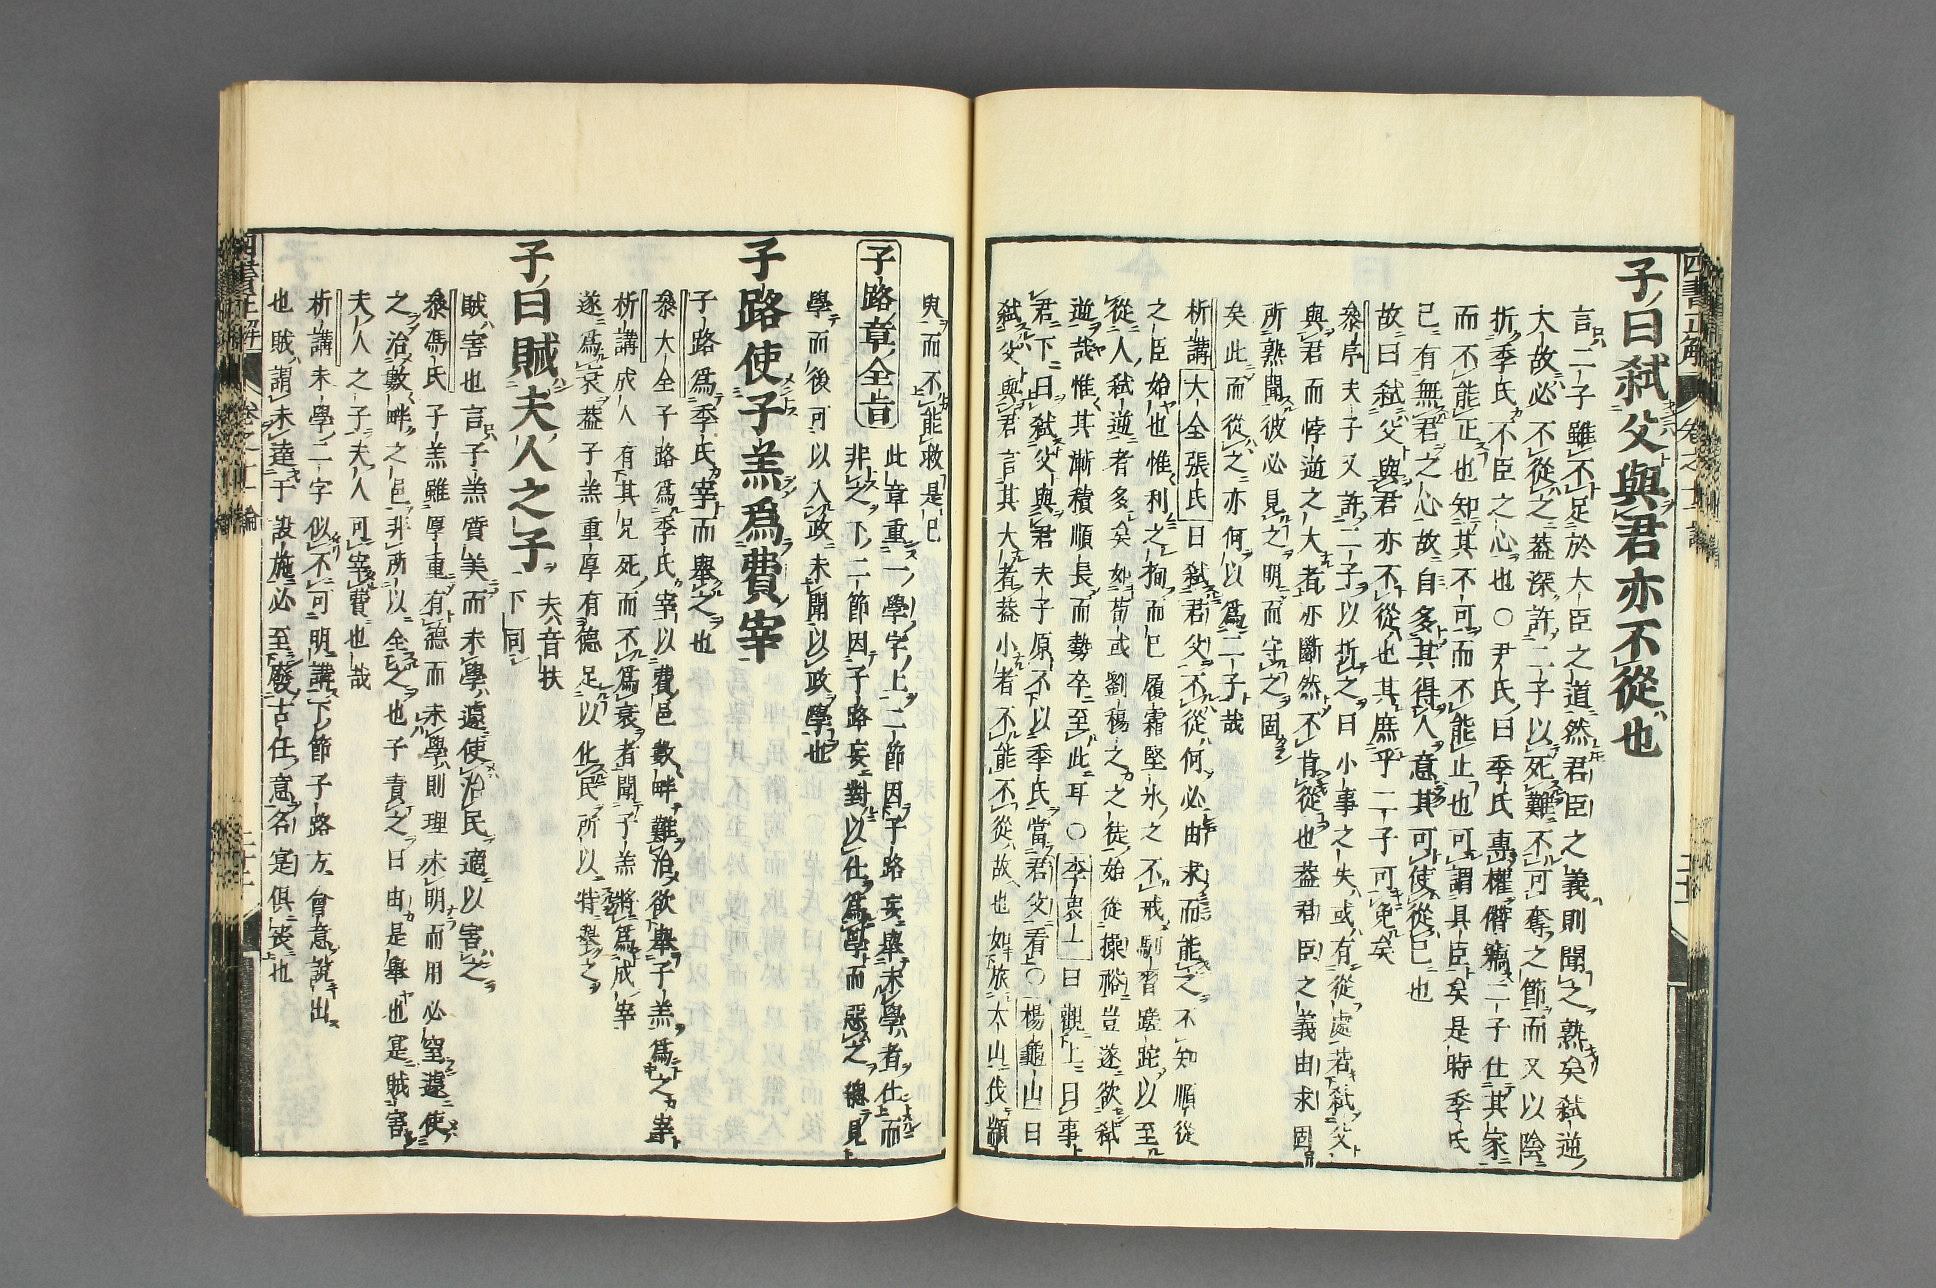 子曰弑父與君亦不從也
言二子雖不足於大臣之道然君臣之義則聞之熟矣弑逆
大故必不從之蓋深許二子以死難不可奪之節而又以陰
折季氏不臣之心也○尹氏曰季氏專權僭竊二子仕其家
而不能正也知其不可而不能止也可謂具臣矣是時季氏
已有無君之心故自多其得人意其可使從已也
故曰弑父與君亦不從也其庶乎二子可免矣
叅序夫子又許二子以折之曰小事之失或有從處若弑父
與君而悖逆之大者亦斷然不肯從也蓋君臣之義由求固
所熟聞彼必見之明而守之固
矣此而從之亦何以爲二子哉
析講大全張氏曰弑君父不從何必由求而能之不知順從
之臣始也惟利之狥而已履霜堅氷之不戒馴習蹉跎以至
從人弑逆者多矣如荀彧劉穆之之徒始從操裕豈遂欲弑
逆哉惟其漸積順長而勢卒至此耳○李衷一曰觀上曰事
君下曰弑父與君夫子原不以季氏當君父看○楊龜山曰
弑父與君言其大者蓋小者不能不從故也如旅太山伐顓
臾而不能救是已
子路章全旨此章重一學字上二節因子路妄舉未學者仕而
非之下二節因子路妄對以仕爲學而惡之總見
學而後可以入政未聞以政學也
子路使子羔爲費宰
子路爲季氏宰而舉之也
叅大全子路爲季氏宰以費邑數畔難治欲舉子羔爲之宰
析講成人有其兄死而不爲衰者聞子羔將爲成宰
遂爲衰蓋子羔重厚有德足以化民所以特舉之
子曰賊夫人之子夫音扶
下同
賊害也言子羔質美而未學遽使治民適以害之
叅馮氏子羔雖厚重有德而未學則理未明而用必窒遽使
之治數畔之邑非所以全之也子責之曰由是舉也寔賊害
夫人之子夫人可宰費也哉
析講未學二字似不可明講下節子路方會意說出
也賊謂未達于設施必至廢古任意名寔俱喪也
四書正解
卷之十一論
四書正解
卷之十一論